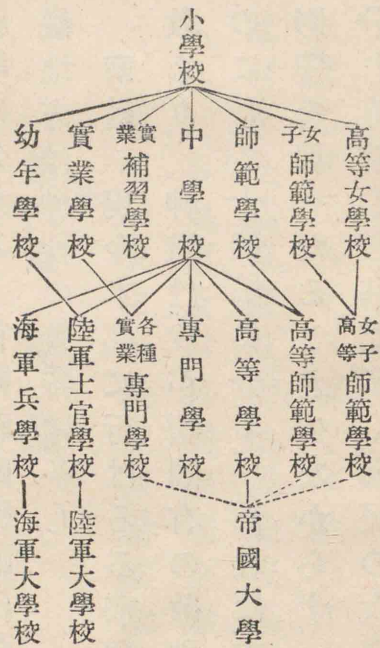 小學校
高等女學校
女子師範學校
師範學校
中學校
實業補習學校
實業學校
幼年學校
女子高等師範學校
高等師範學校
高等學校
專門學校
各種實業專門學校
陸軍士官學校
海軍兵學校
帝國大學
陸軍大學校
海軍大學校